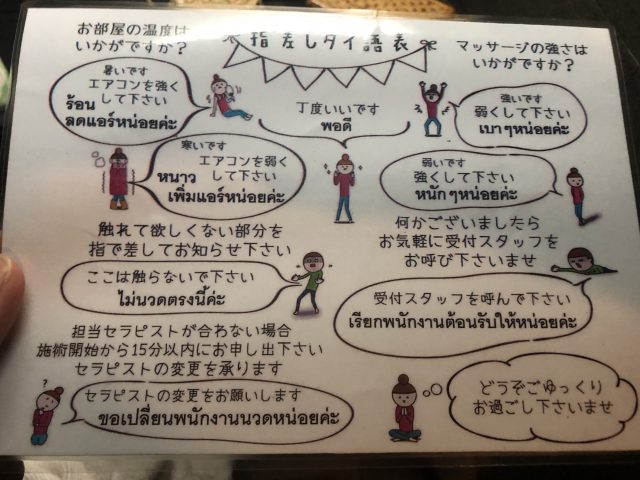 指差しタイ語表
お部屋の温度は
いかがですか？
暑いです
エアコンを強く
して下さい
ร้อน
ลดแอร์หน่อยค่ะ
寒いです
エアコンを弱く
して下さい
หนาว
เพิ่มแอร์หน่อยค่ะ
丁度いいです
พอดี
マッサージの強さは
いかがですか？
強いです
弱くして下さい
เบาๆหน่อยค่ะ
弱いです
強くして下さい
หนักๆหน่อยค่ะ
触れて欲しくない部分を
指で差してお知らせ下さい
ここは触らないで下さい
ไม่นวดตรงนี้ค่ะ
何かございましたら
お気軽に受付スタッフを
お呼び下さいませ
受付スタッフを呼んで下さい
เรียกพนักงานต้อนรับให้หน่อยค่ะ
担当セラピストが合わない場合
施術開始から15分以内にお申し出下さい
セラピストの変更を承ります
?
セラピストの変更をお願いします
ขอเปลี่ยนพนักงานนวดหน่อยค่ะ
どうぞごゆっくり
お過ごし下さいませ